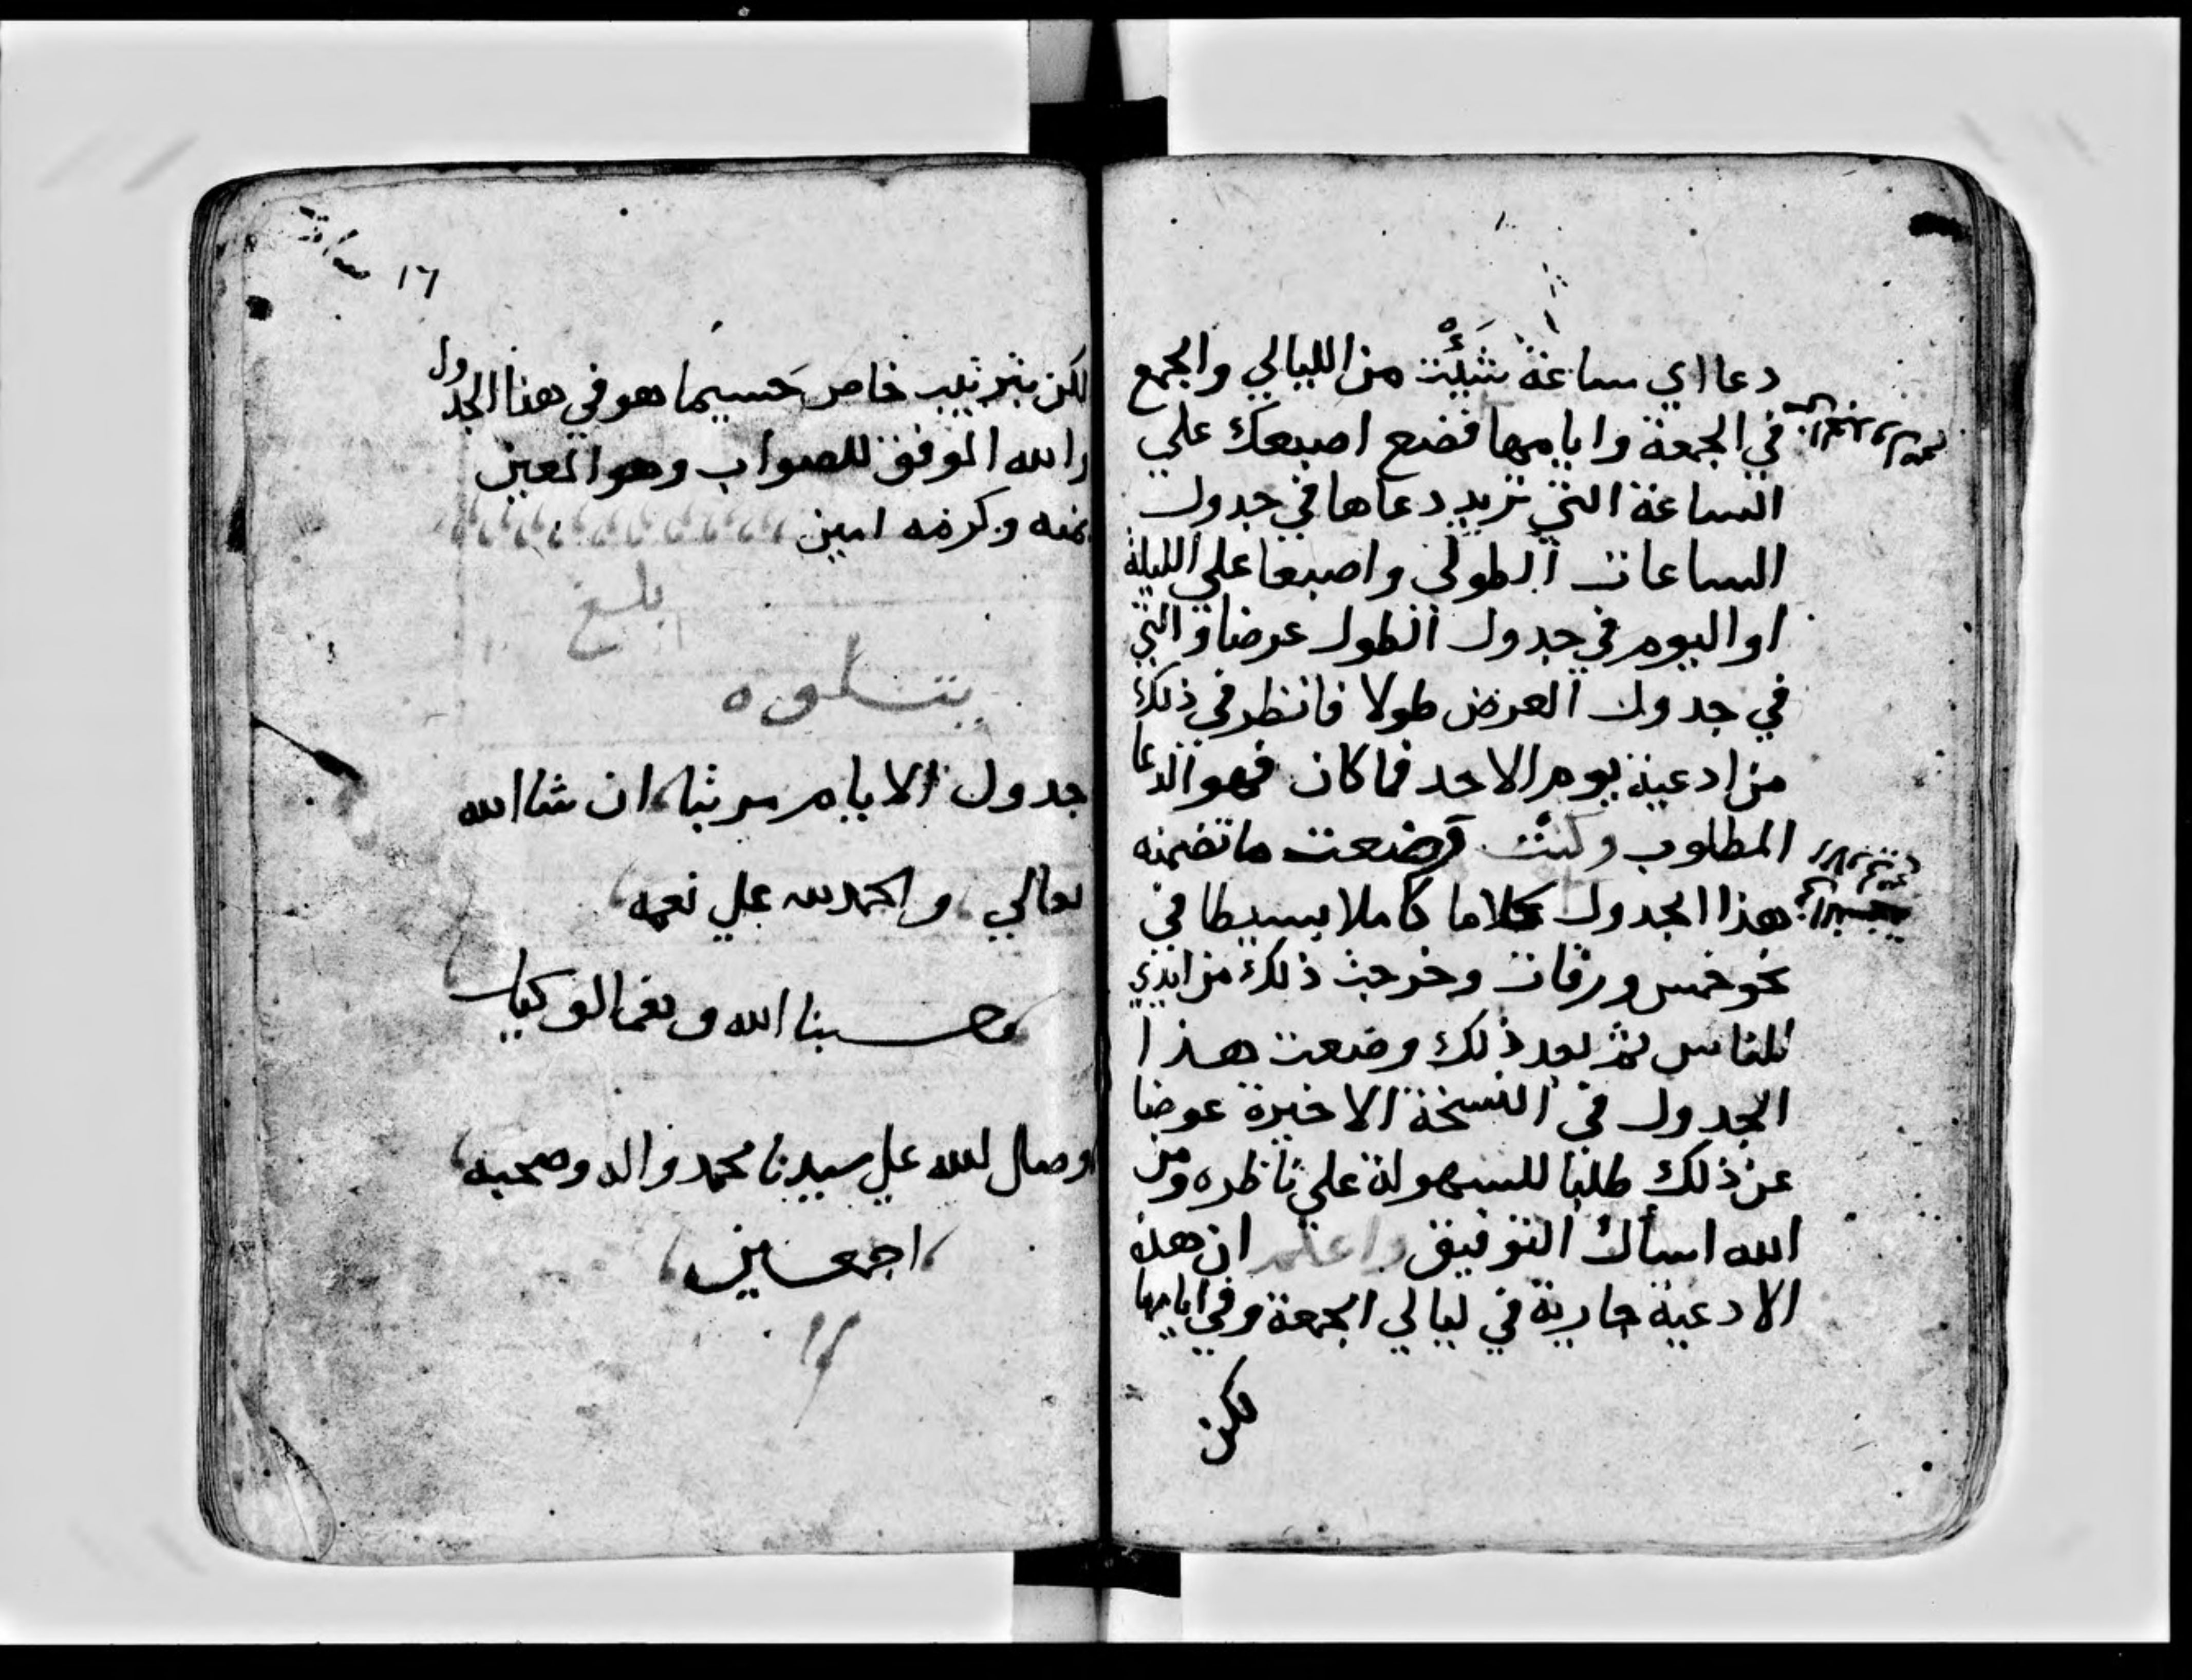 دعا اي ساعة شَئْت من الليالي والجمع
في الجمعة وايامها فضع اصبعك علي
الساعة التي تريد دعاها في جدول
الساعات الطولى واصبعا علي الليلة
او اليوم في جدول الطول عرضا والتي
في جدول العرض طولا فانظر في ذلك
من ادعية يوم الاحد فما كان فهو الدعا
المطلوب وكنت وضعت ما تضمنه
هذا الجدول كلاما كاملا بسيطا في
نحو خمس ورقات وخرجت ذلك من ايدي
للناس ثم بعد ذلك وضعت هذا
الجدول في النسخة الاخيرة عوضا
عن ذلك طلبا للسهولة علي ناظره ومن
الله اسأل التوفيق واعلم ان هذه
الادعية جارية في ليالي الجمعة وفي ايامها
لكن
١٦
لكن بترتيب خاص حسبما هو في هذا الجدول
والله الموفق للصواب وهو المعين
بمنه وكرمه امين
بلغ
يتلوه
جدول الايام مرتبا ان شا الله
تعالي والحمد لله علي نعمه
وحسبنا الله ونعم الوكيل
وصلى الله علي سيدنا محمد واله وصحبه
اجمعين